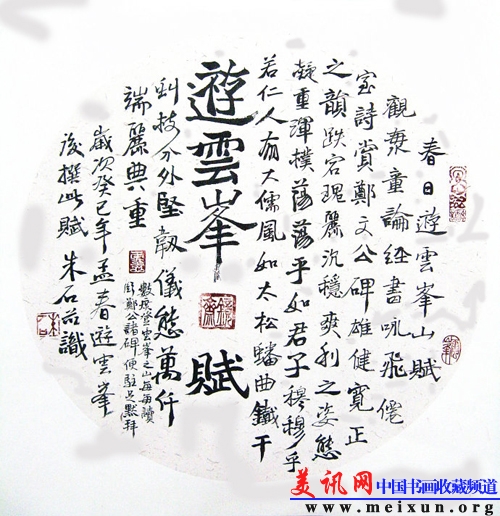 春日遊雲峯山賦
觀衆童論経書咏飛僊
室詩賞鄭文公碑雄健寛正
之韻跌宕瑰麗沉穩爽利之姿態
凝重渾樸蕩蕩乎如君子穆穆乎
若仁人有大儒風如太松蟠曲鐵干
遊雲峯賦
虬枝分外堅韌儀態萬仟
端麗典重
數度登雲峯之山每每讀
周鄭公諸碑便駐足默拜
歲次癸巳年孟春遊雲峯
後撰此賦 朱石芯識
美讯网 中国书画收藏频道
www.meixun.org